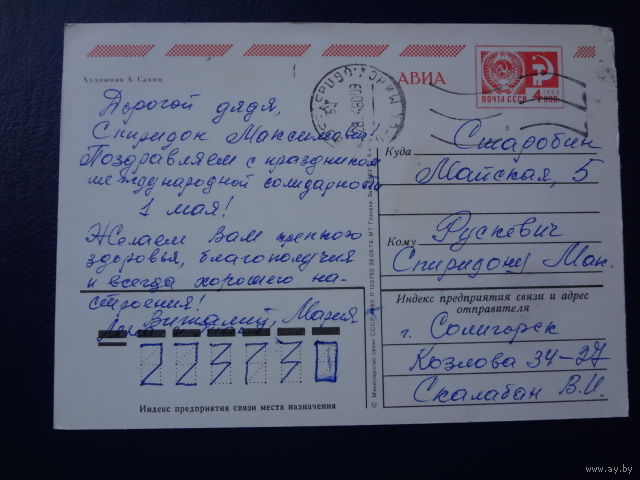 Художник А. Савин
АВИА
ПОЧТА СССР 4 КОП
Дорогой дядя,
Спиридон Максимович!
Поздравляем с праздником
международной солидарности
1 мая!
Желаем Вам крепкого
здоровья, благополучия
и всегда хорошего на-
строения!
Виталий, Мария.
Куда Старобин
Майская, 5
Кому Рускевич
Спиридону Мак.
Индекс предприятия связи и адрес
отправителя
г. Солигорск
Козлова 34-27
Скалабан В.И.
223730
Индекс предприятия связи места назначения
© Министерство связи СССР
ay.by